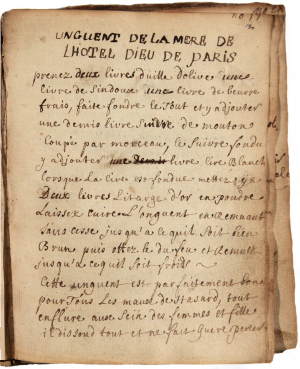 UNGUENT DE LA MERE DE
LHOTEL DIEU DE PARIS
prenez deux livres d'uille d'olive une
Livre de Sindoux une livre de beurre
frais, faite fondre le tout et y adjouter
une demis livre de mouton
Coupé par morceau, le Suivre fondu
y adjouter une demis livre Cire Blanch
Lorsque La Cire est fondue mettez y
Deux livres Litarge d'or en poudre
Laissez Cuire L'onguent en remuant
Sans cesse jusqu'a ce quil Soit bien
Brun puis ottez le du feu et
Jusqu'a ce quil Soit froid
Cette unguent est parfaitement bonne
pour tous Les maux de tout
enflure aux Sein des femmes et fille
il dissoud tout et ne fait guere